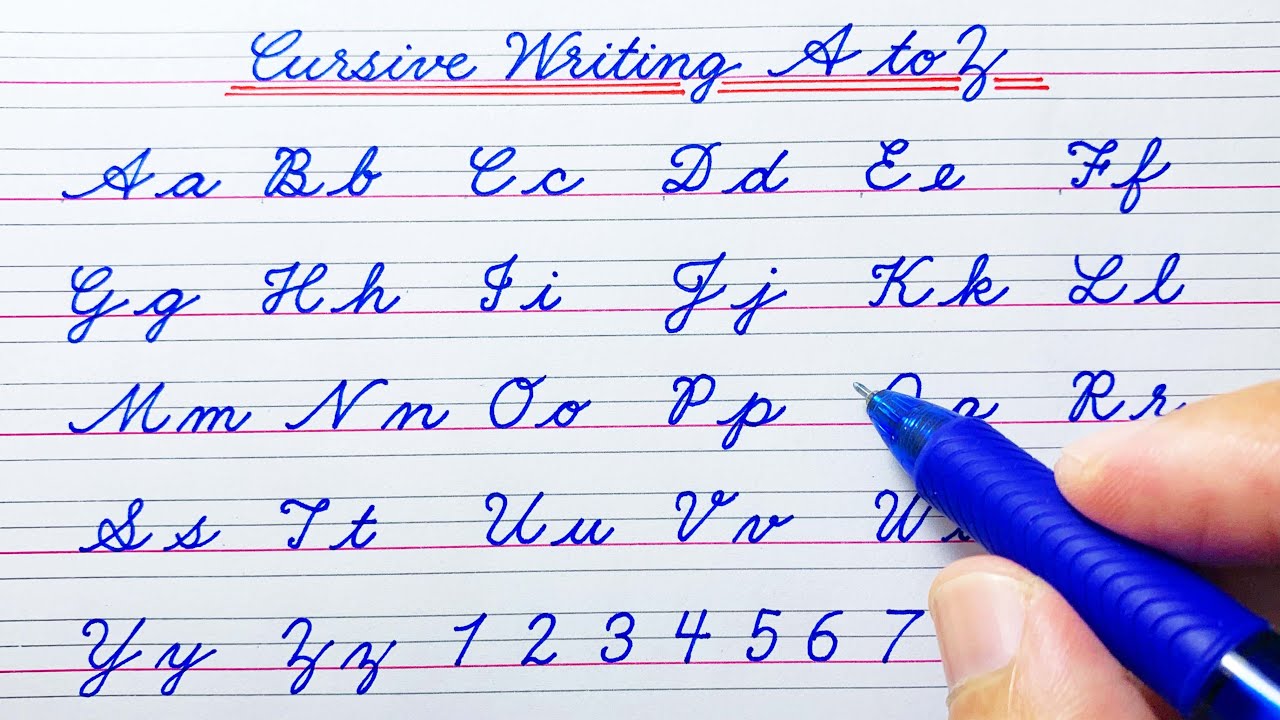 Cursive Writing A to Z
Aa Bb Cc Dd Ee Ff
Gg Hh Ii Jj Kk Ll
Mm Nn Oo Pp Rr
Ss Tt Uu Vv W
Yy Zz 1 2 3 4 5 6 7